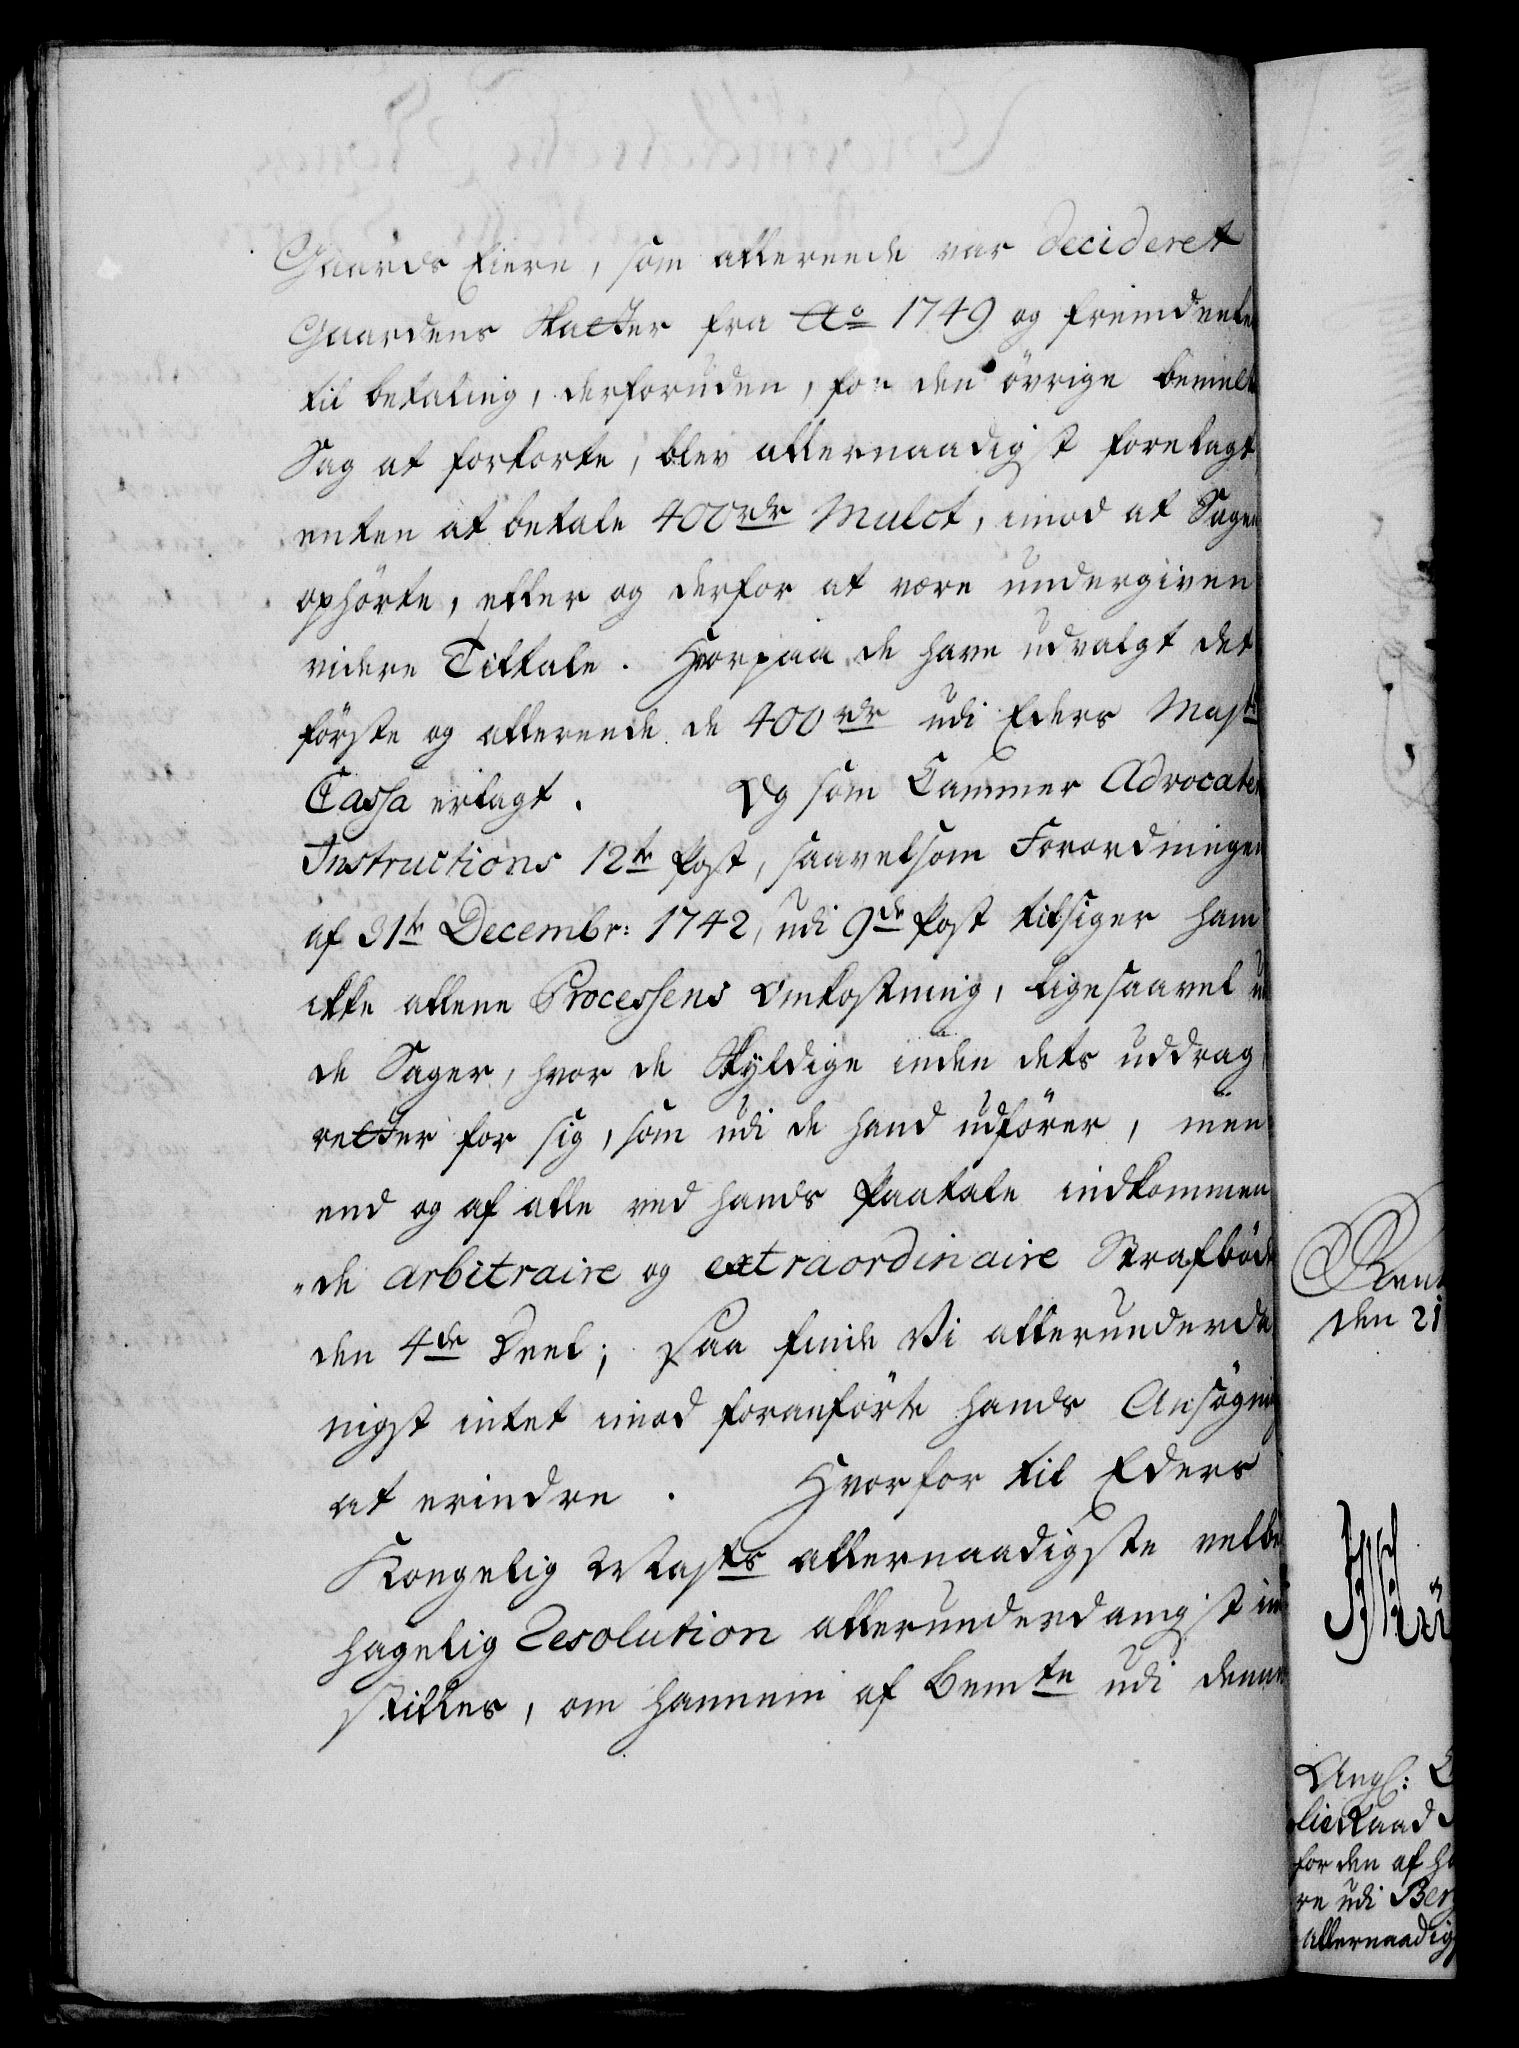 Gaards Eiere, som allereede var decideret
Gaardens Skatter fra Ao 1749 og fremdeele
til betaling, derforuden, for den övrige bemelte
Sag at forkorte, blev allernaadigst forelagt
enten at betale 400 rdr Mulct, imod at Sagen
ophörte, eller og derfor at være undergiven
videre Tiltale. Hvorpaa de have udvalgt det
förste og allereede de 400 rdr udi Eders Majts
Cassa erlagt. Og som Cammer Advocatens
Instructions 12te Post, saavelsom Forordningen
af 31te Decembr: 1742, udi 9de Post tilsiger ham
ikke allene Processens Omkostning, ligesaavel udi
de Sager, hvor de Skyldige inden dets uddrag,
retter for sig, som udi de hand udförer, men
end og af alle ved hands Paatale indkommen
de arbitraire og extraordinaire Strafböder
den 4de Deel; Saa finde Vi allerunderda
nigst intet imod foranförte hands Ansögning
at erindre. Hvorfor til Eders
Kongelig Majts allernaadigste velbe
hagelig Resolution allerunderdanigst ind
stilles, om hannem af Bemte udi denne
Rent
den 21
Angl:
lie Raad
for den af ha
re udi Berg
allernaadigst